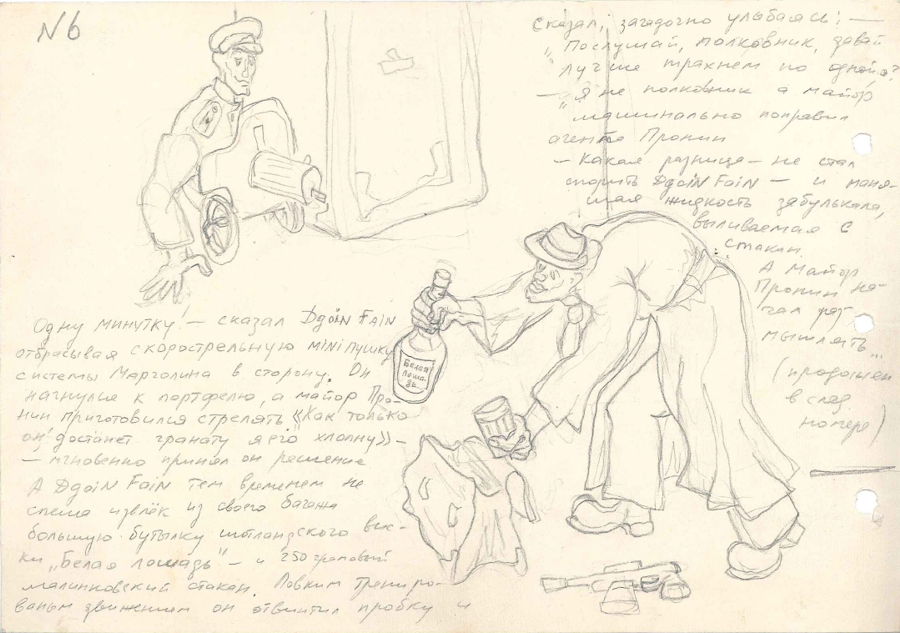 N6
Одну минутку! — сказал DgoiN FaiN
отбрасывая скорострельную MiNi пушку
системы Марголина в сторону. Он
нагнулся к портфелю, а майор Про-
нин приготовился стрелять «Как только
он достанет гранату я его хлопну» —
— мгновенно принял он решение
А DgoiN FaiN тем временем не
спеша извлёк из своего багажа
большую бутылку шотландского вис-
ки „Белая лошадь" — и 250 грамовый
малинковский стакан. Ловким трениро-
ваным движением он отвинтил пробку и
Белая
Лоша-
дь
Сказал, загадочно улыбаясь: —
„Послушай, полковник, давай
лучше трахнем по одной?
— „Я не полковник а майор
машинально поправил
агента Пронин
— Какая разница — не стал
спорить DgoiN FaiN — и маня-
щая жидкость забулькала,
выливаемая в
стакан.
А Майор
Пронин на-
чал раз-
мышлять...
(продолжен
в след.
номере)